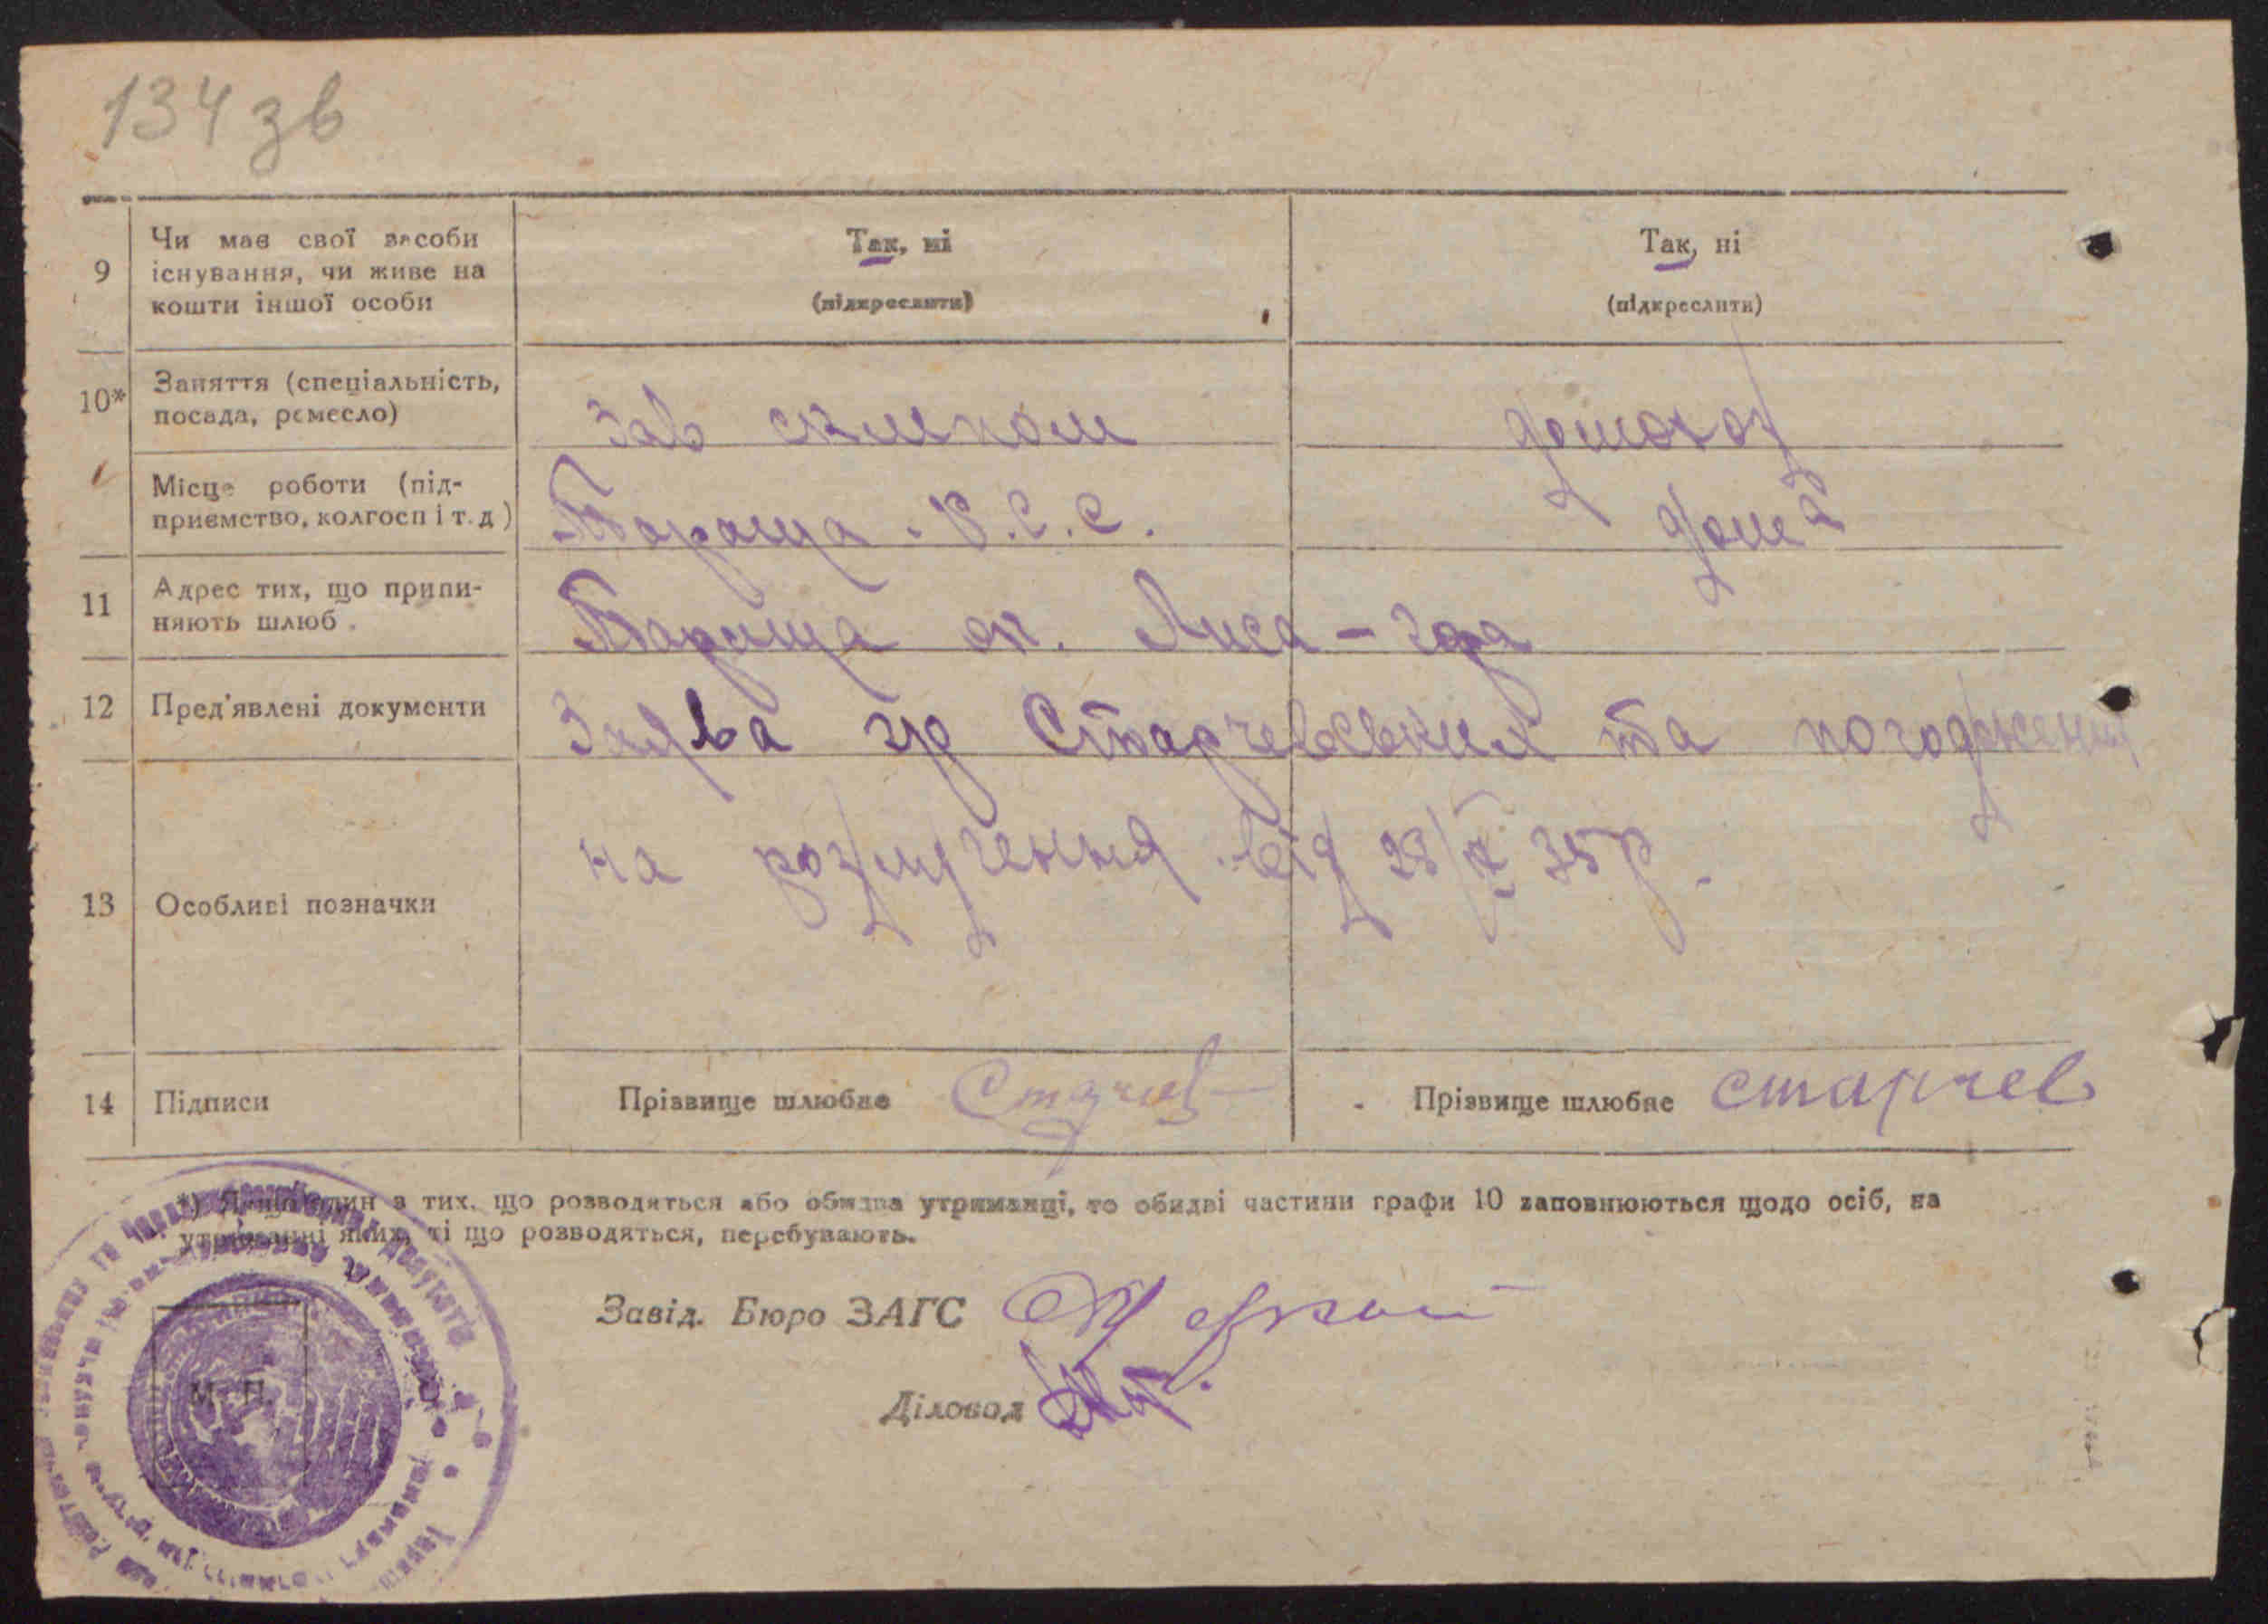 134 зв
9 Чи має свої засоби існування, чи живе на кошти іншої особи
Так, ні
(підкреслити)
Так, ні
(підкреслити)
10* Заняття (спеціальність, посада, ремесло)
Зав
домогос
Місце роботи (підприємство, колгосп і т. д)
Тараща. Р.С.С.
дома
11 Адрес тих, що припиняють шлюб.
Тараща ок. Лиса-гора
12 Пред'явлені документи
Заява гр Старчевський та погодження
на розлучення від 28/ 35р.
13 Особливі позначки
14 Підписи
Прізвище шлюбне
Прізвище шлюбне Старчев
*) Якщо один з тих, що розводяться або обидва утриманці, то обидві частини графи 10 заповнюються щодо осіб, на
утриманні яких, ті що розводяться, перебувають.
Завід. Бюро ЗАГС
Діловод
М. П.